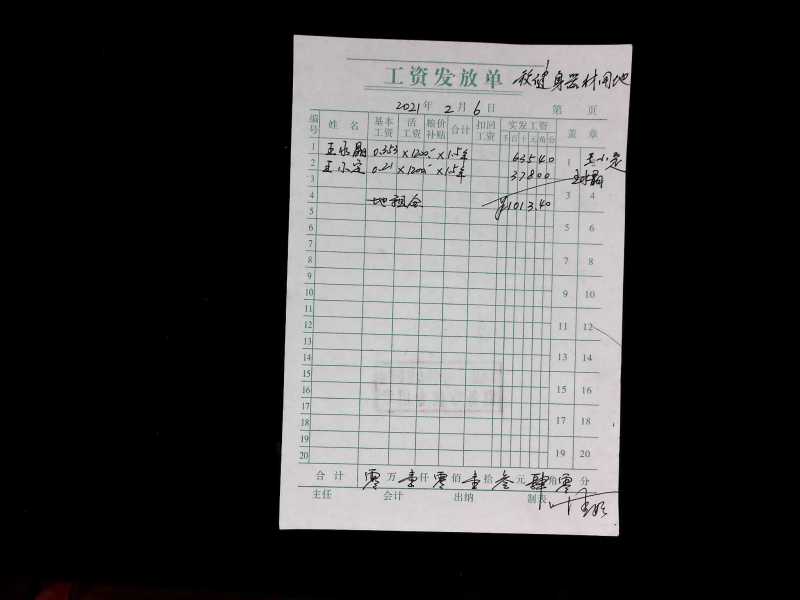 工资发放单 健身器材用地
2021年 2月 6日 第 页
编号 姓名 基本工资 活工资 粮价补贴 合计 扣回工资 实发工资 盖章
千 百 十 元 角 分
1 王永朝 0.353 ×1200 ×1.5年 635.40 1 王小定
2 王小定 0.21 ×1200 ×1.5年 378.00
3 3 4
4 地租金 ¥1013.40
5 5 6
6
7 7 8
8
9 9 10
10
11 11 12
12
13 13 14
14
15 15 16
16
17 17 18
18
19 19 20
20
合计 零万壹仟零佰壹拾叁元肆角零分
主任 会计 出纳 制表